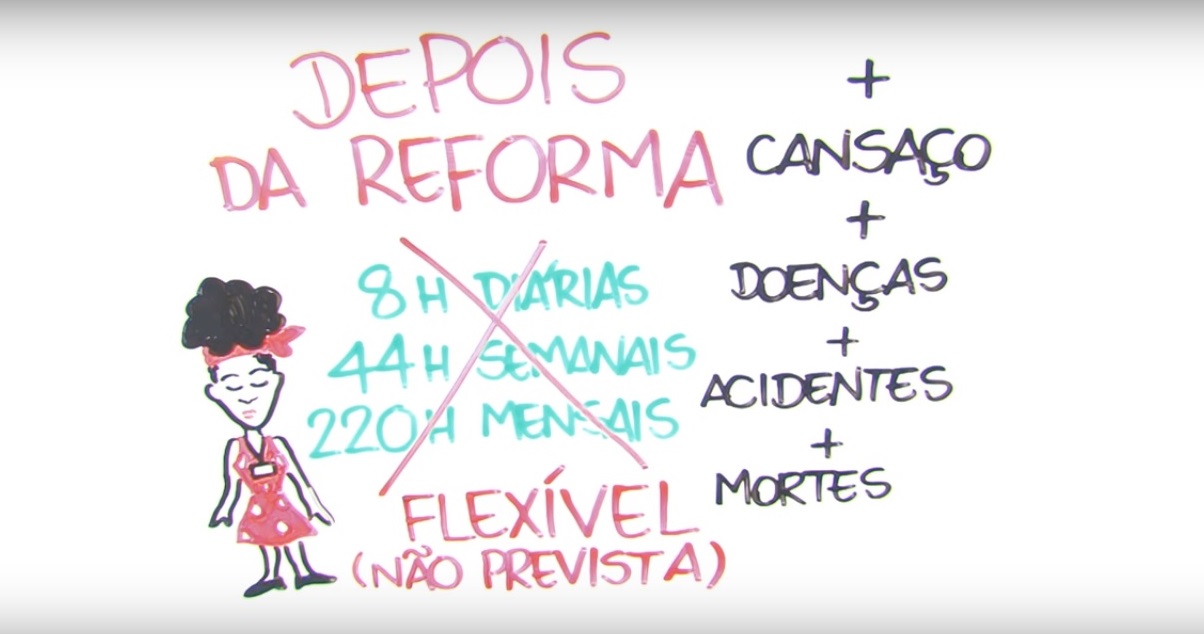 DEPOIS
DA REFORMA
8H DIÁRIAS
44H SEMANAIS
220H MENSAIS
FLEXÍVEL
(NÃO PREVISTA)
+
CANSAÇO
+
DOENÇAS
+
ACIDENTES
+
MORTES